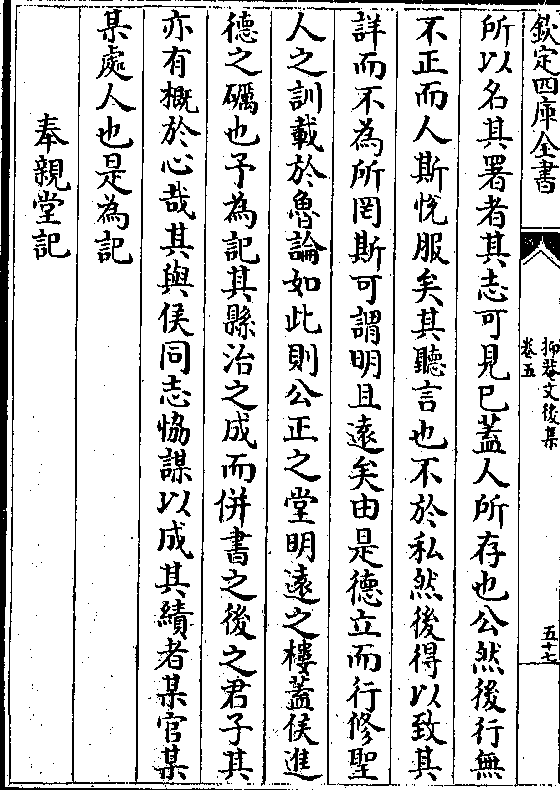 欽定四庫全書
抑菴文後集
卷五
五十七
所以名其署者其志可見已蓋人所存也公然後行無
不正而人斯悅服矣其聽言也不於私然後得以致其
詳而不為所罔斯可謂明且遠矣由是德立而行修聖
人之訓載於魯論如此則公正之堂明遠之樓蓋侯進
德之礪也予為記其縣治之成而併書之後之君子其
亦有概於心哉其與侯同志恊謀以成其績者某官某
某處人也是為記
奉親堂記